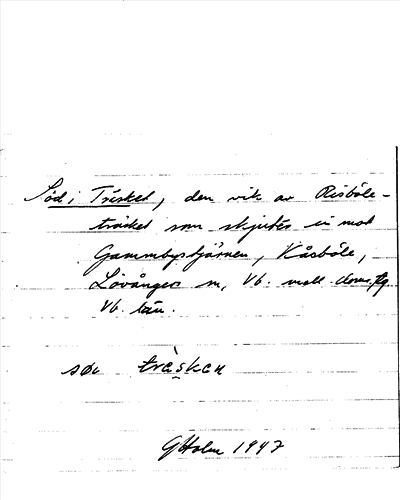 Söd i Träsket, den vik av Risböle-
träsket som skjuter in mot
Gammbystjärnen, Kåsböle,
Lövånger sn, Vb.
Vb. län.
sø träskan
GHolm 1947